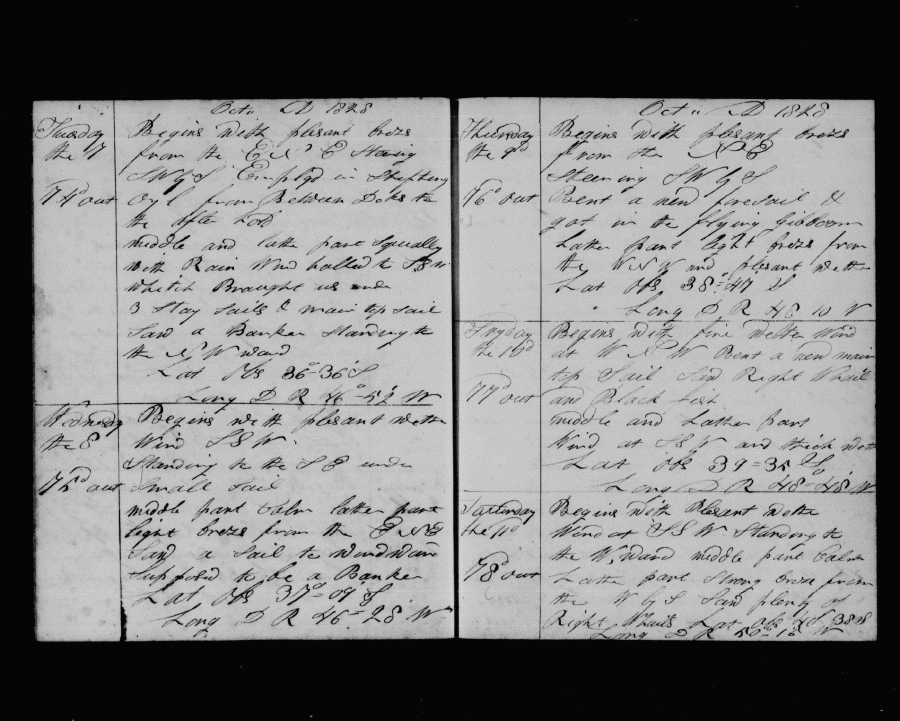 Oct AD 1828
Tuesday Begins with plesant brezs
the 7 from the E N E Stering
SW & S Employd in Shipting
74d out Oyl from Between Deks to
the
middle and latter part Squally
with Rain Wind halled to S S W
whitch Braught us under
3 Stay Sails & main top sail
Saw a Banker Standing to
the N W ward
Lat Obs 36°=36 S
Long D R 46°-52 W
Wednesdy Begins with plesant wether
the 8 Wind S S W
Standing to the S E under
75d out Small sail
middle part Calm latter part
light brezs from the E N E
Saw a Sail to windward
Supposd to be a Banker
Lat Obs 37°=09 S
Long D R 46=28 W
Oct AD 1828
Thursday Begins with plesant brezs
the 9d from the N E
Steering SW & S
76d out Bent a new foresail &
got in the flying Gibboom
Latter part light brezs from
the W N W and plesant wether
Lat Obs 38=47 S
Long D R 48 10 W
Fryday Begins with fine wether Wind
the 10d at W N W Bent a new main
top Sail Saw Right Whail
77d out and Black fish
middle and Latter part
Wind at S S W and thick weth
Lat Obs 39=35 S
Long D R 48°=48 W
Satturday Begins with Plesant wethe
the 11d Wind at S S W Standing to
the W,ward middle part Calm
78d out Latter part Strong breze from
the W & S Saw plenty of
Right Whails Lat Obs 38
Long D R 50=18 W